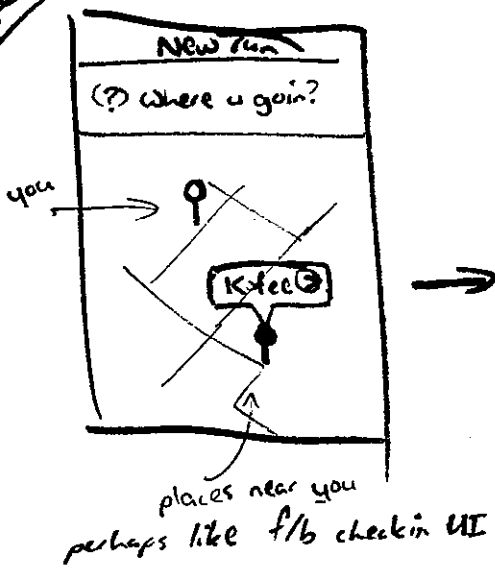 New run
(?) where u goin?
you
Kofee
places near you
perhaps like f/b checkin UI